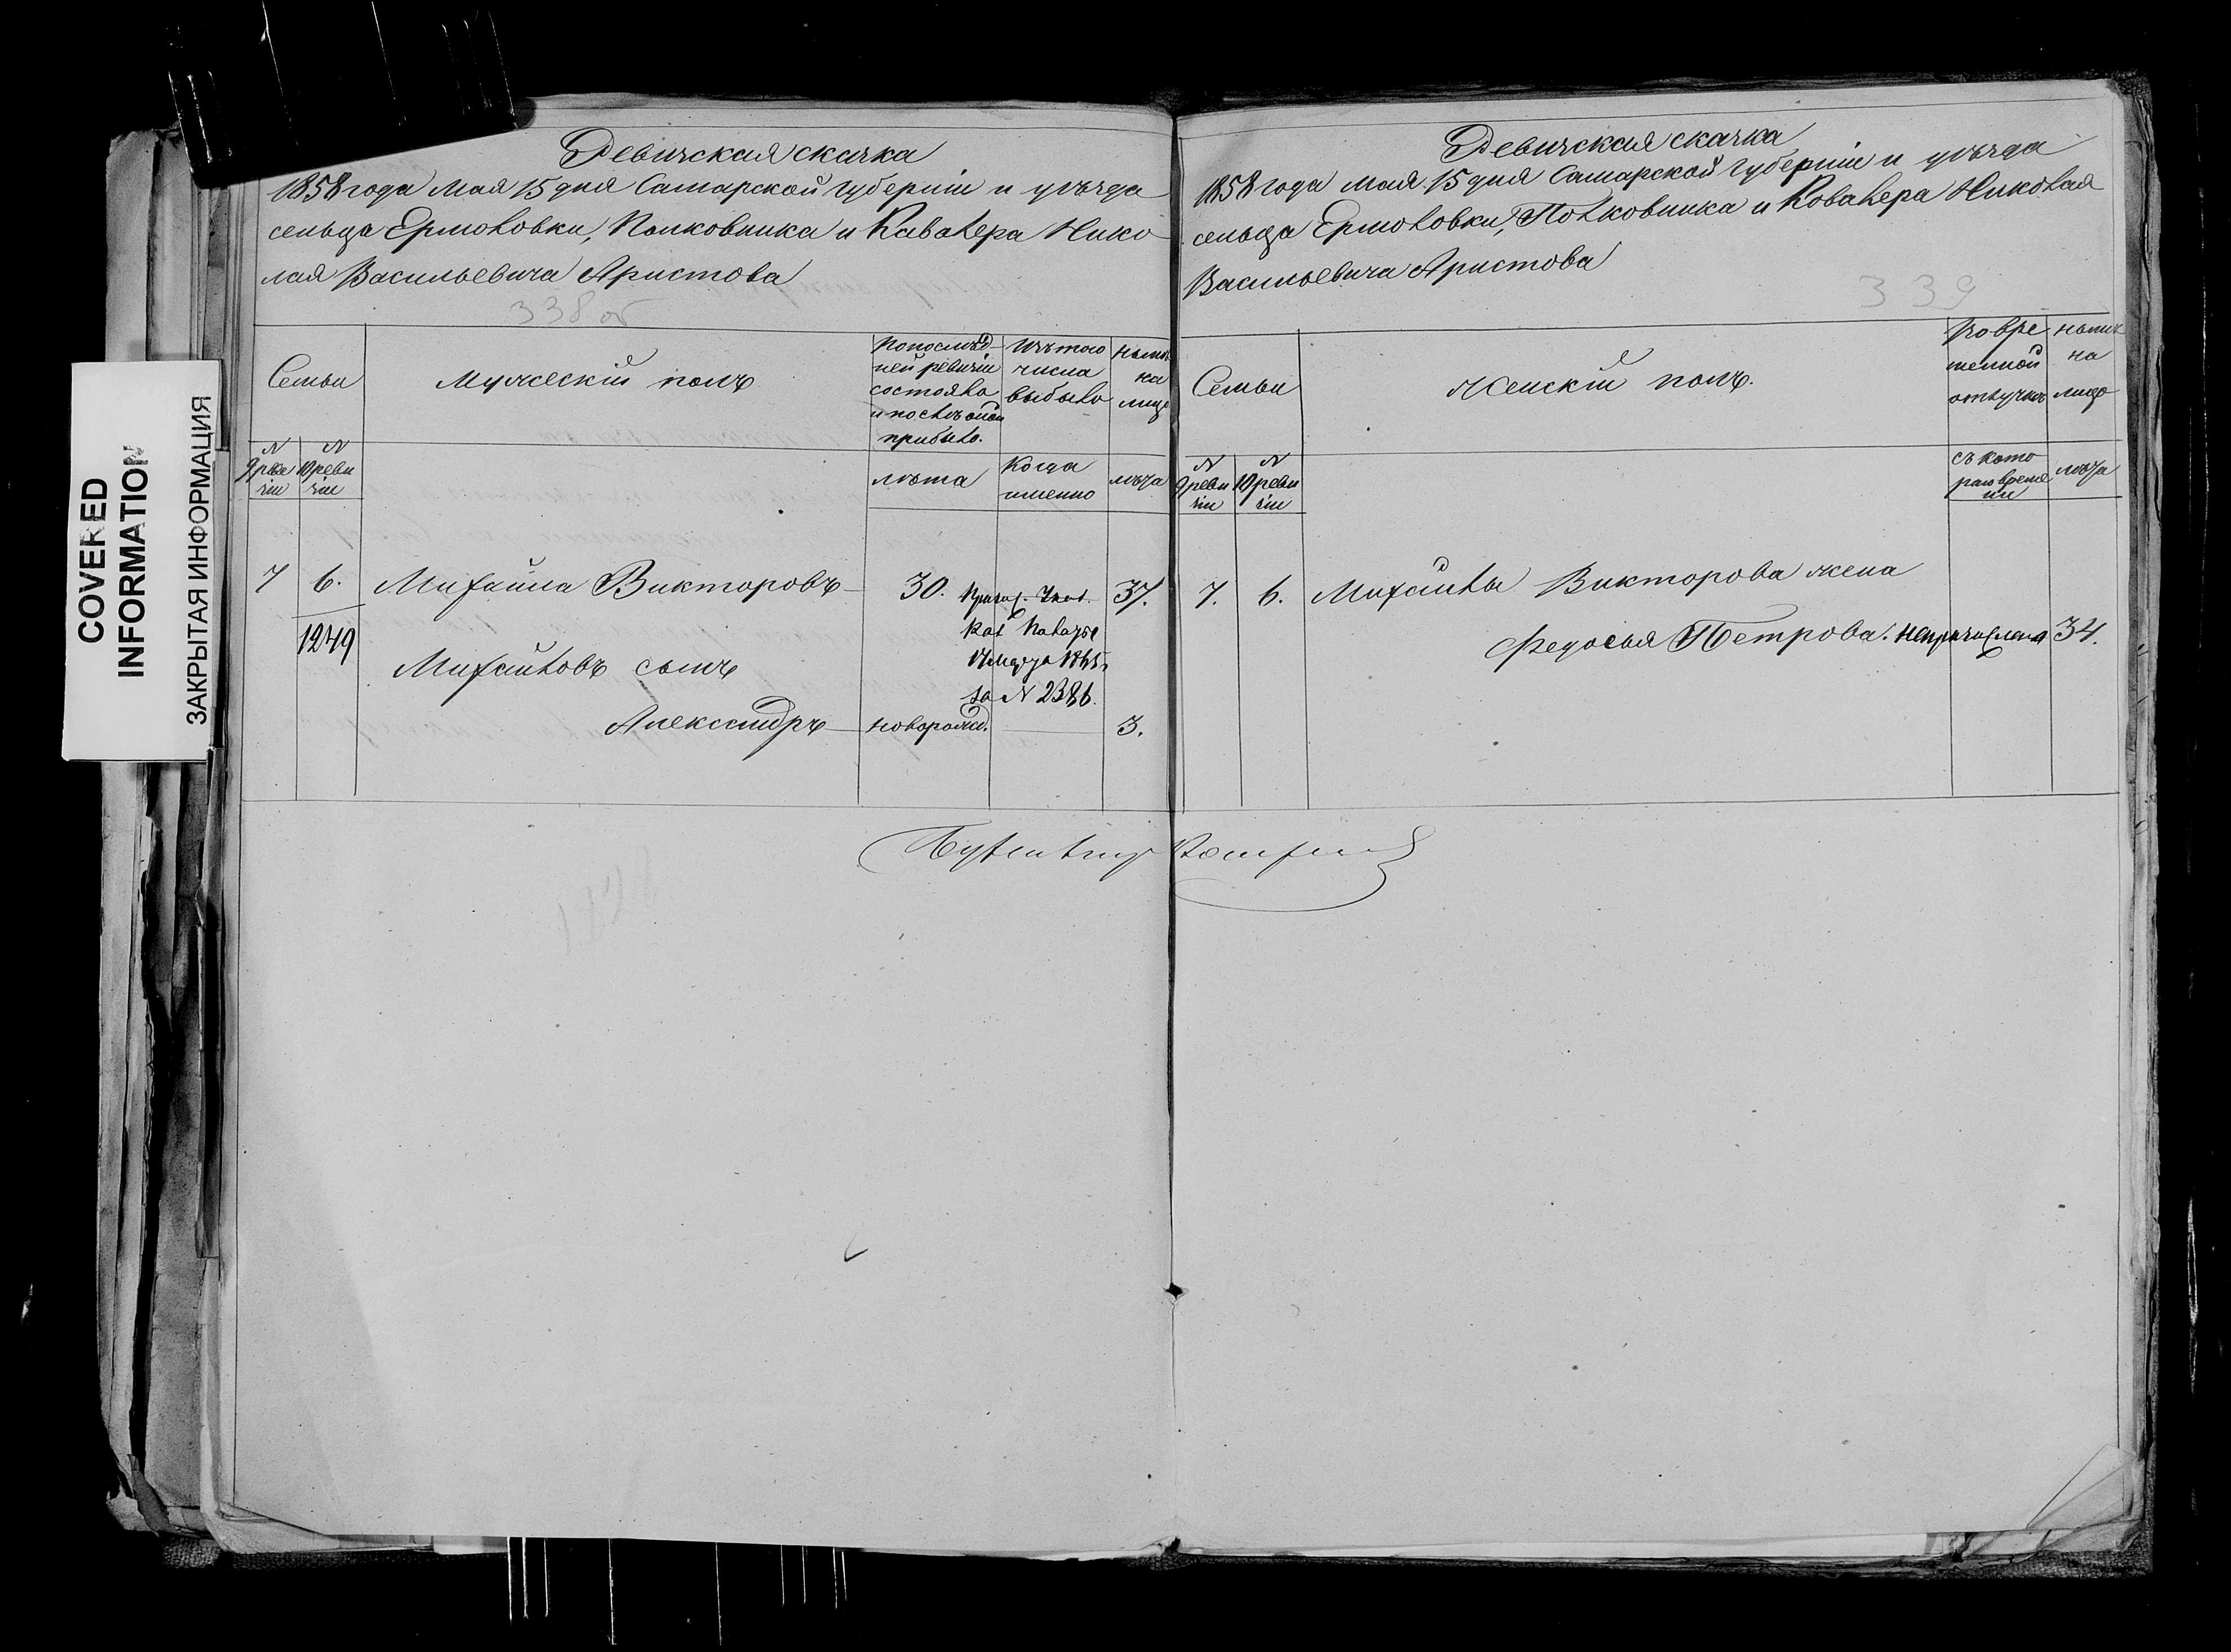 COVERED
INFORMATION
ЗАКРЫТАЯ ИНФОРМАЦИЯ
Ревизская сказка
1858 года Мая 15 дня Самарской губерніи и уѣзда
сельца Ермоловки, Полковника и Кавалера Нико
лая Васильевича Аристова
338 об
Семьи
Мужескій полъ
Попослѣд
ней ревизіи
состояло
и послѣ оной
прибыло.
Изъ того
числа
выбыло
Нынѣ
на
лицо
N
9 реви
зіи
N
10 реви
зіи
лѣта
Когда
именно
лѣта
7 6. Михайла Викторовъ 30. 37.
1249
Михайловъ сынъ
Александръ новорожд. 3.
Причис.
Каз Палаты
1865
за N 2386.
Ревизская сказка
1858 года Мая 15 дня Самарской губерніи и уѣзда
сельца Ермоловки, Полковника и Ковалера Николая
Васильевича Аристова
339
Семьи
Женскій полъ.
Во вре
менной
отлучкѣ
Нынѣ
на
лицо
N
9 реви
зіи
N
10 реви
зіи
съ кото
раго време
ни
лѣта
7. 6. Михайлы Викторова жена
Федосья Петрова. Непричислена 34.